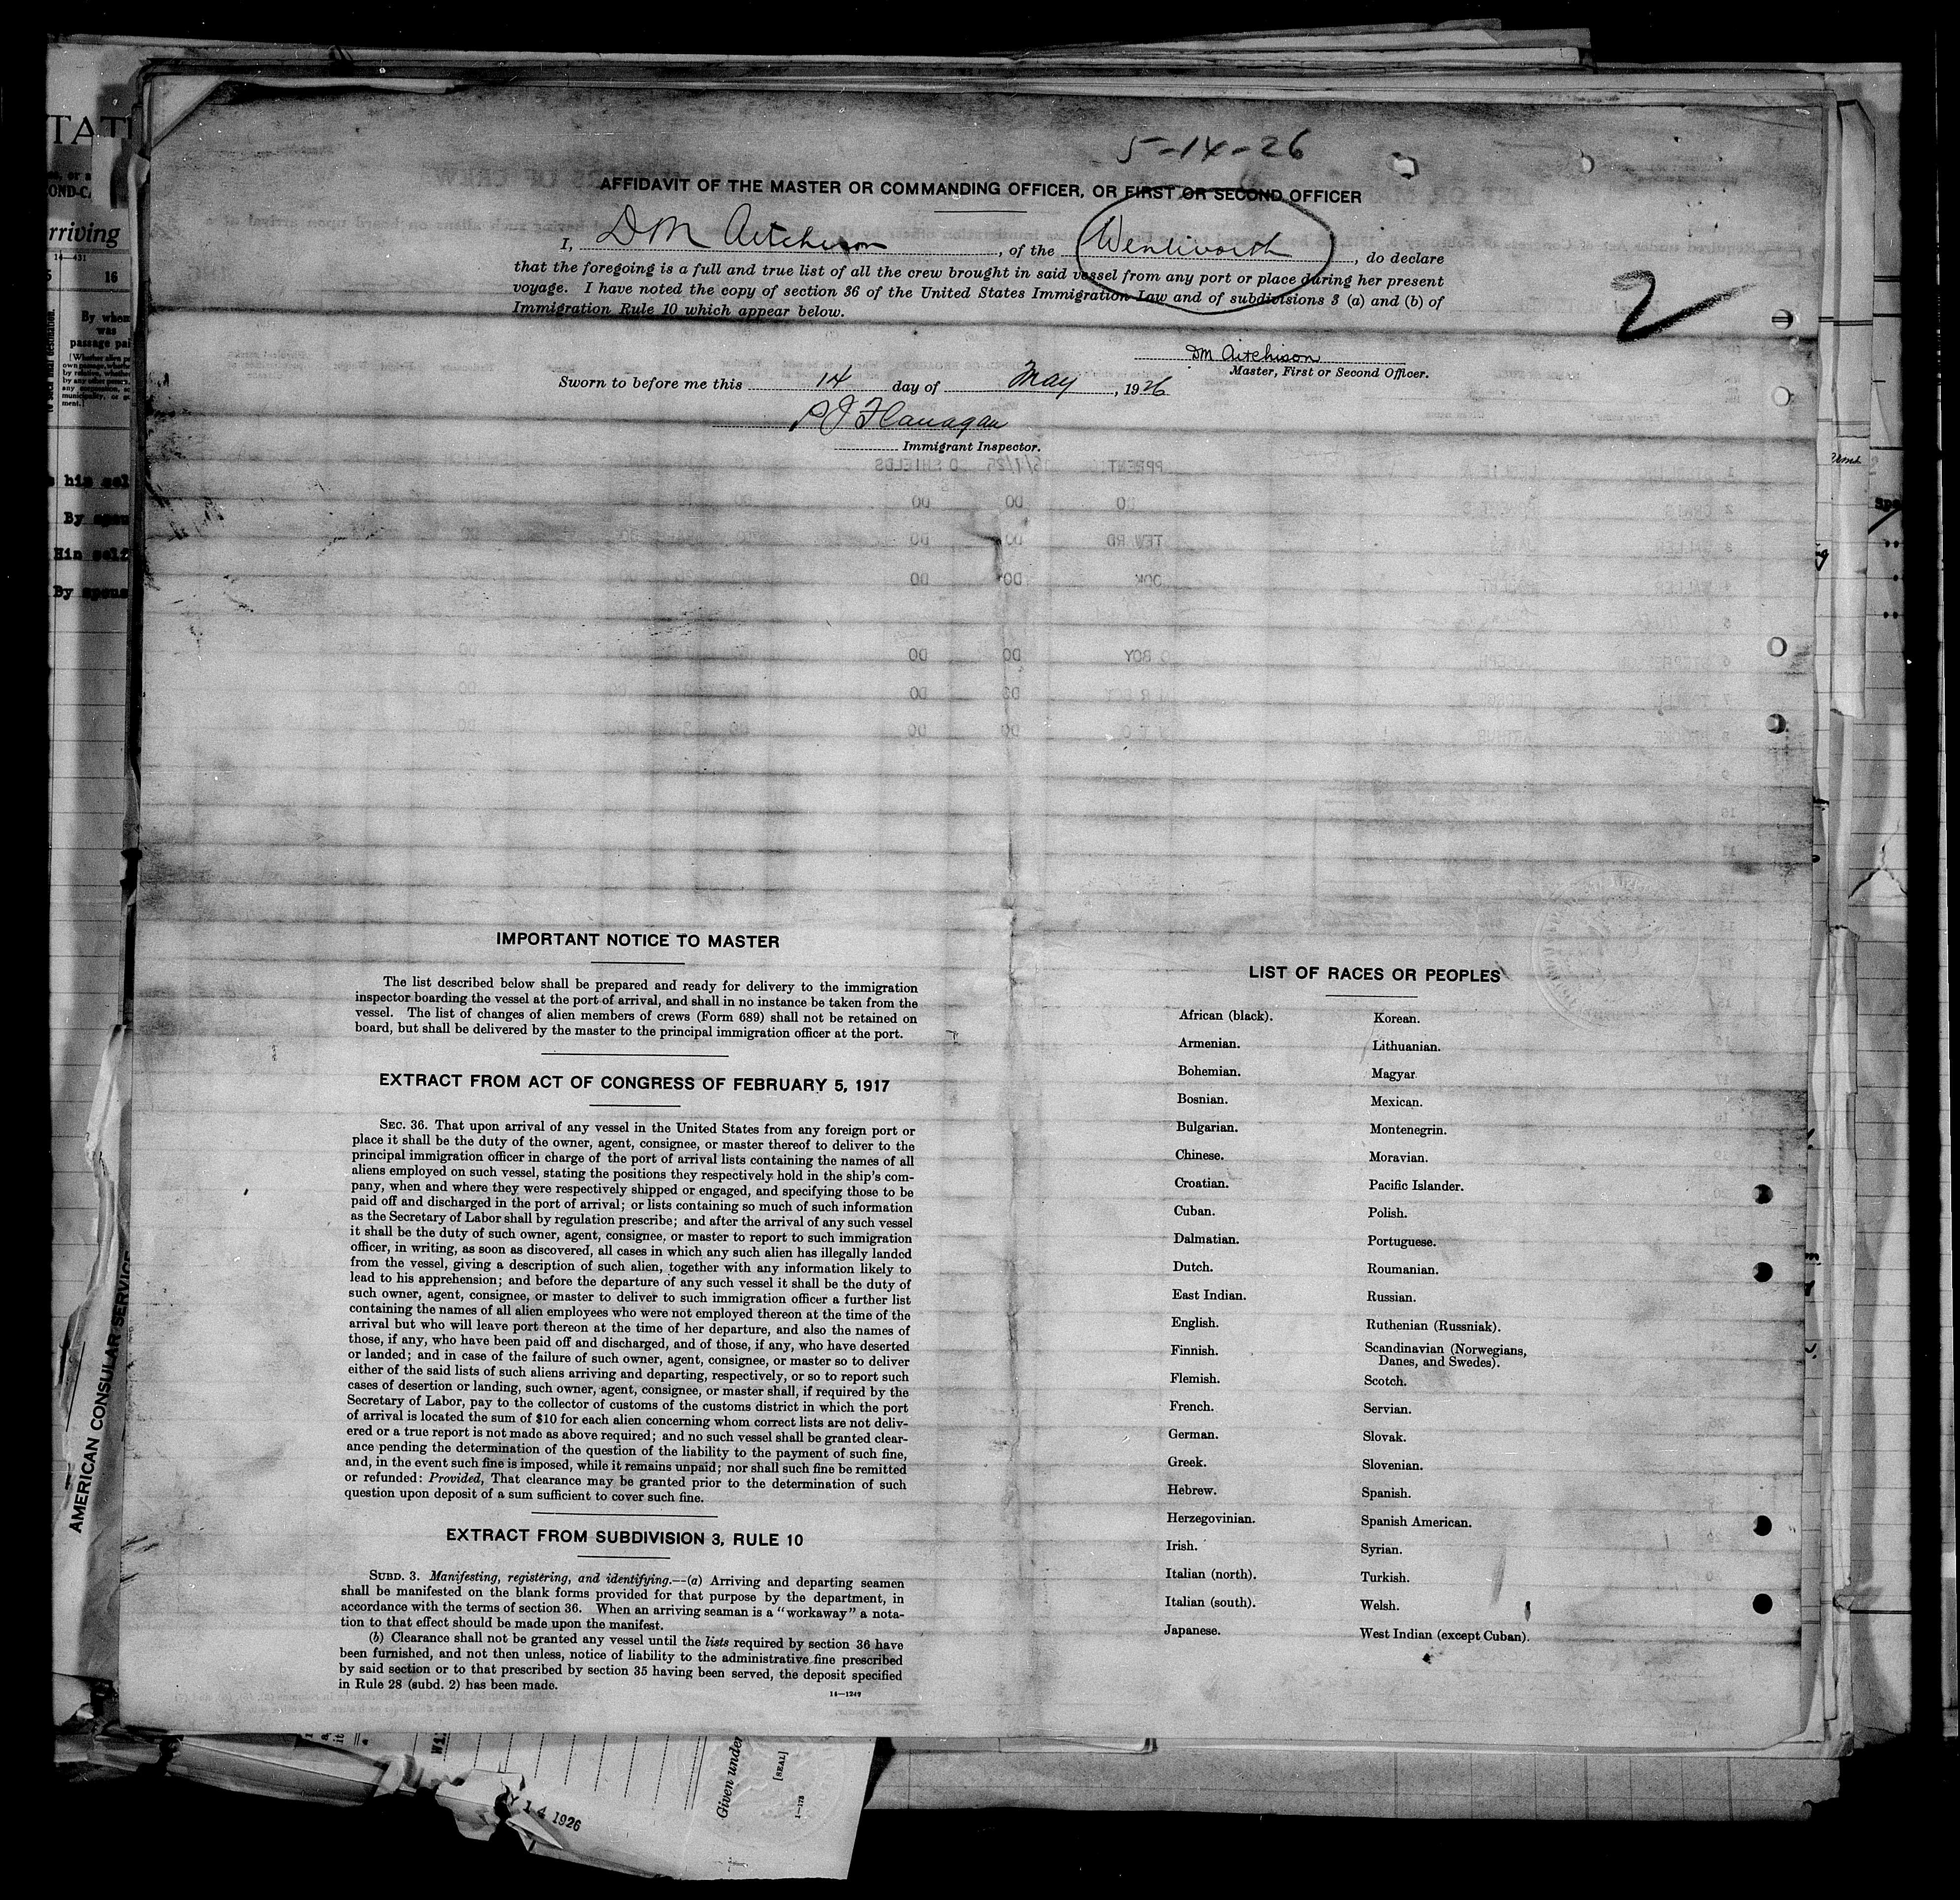 5-14-26
AFFIDAVIT OF THE MASTER OR COMMANDING OFFICER, OR FIRST OR SECOND OFFICER
I, DM Aitchison, of the Wentworth, do declare
that the foregoing is a full and true list of all the crew brought in said vessel from any port or place during her present
voyage. I have noted the copy of section 36 of the United States Immigration Law and of subdivisions 3 (a) and (b) of
Immigration Rule 10 which appear below.
2
DM Aitchison
Master, First or Second Officer.
Sworn to before me this 14 day of May, 1926
P J Flanagan
Immigrant Inspector.
IMPORTANT NOTICE TO MASTER
The list described below shall be prepared and ready for delivery to the immigration
inspector boarding the vessel at the port of arrival, and shall in no instance be taken from the
vessel. The list of changes of alien members of crews (Form 689) shall not be retained on
board, but shall be delivered by the master to the principal immigration officer at the port.
EXTRACT FROM ACT OF CONGRESS OF FEBRUARY 5, 1917
SEC. 36. That upon arrival of any vessel in the United States from any foreign port or
place it shall be the duty of the owner, agent, consignee, or master thereof to deliver to the
principal immigration officer in charge of the port of arrival lists containing the names of all
aliens employed on such vessel, stating the positions they respectively hold in the ship's com-
pany, when and where they were respectively shipped or engaged, and specifying those to be
paid off and discharged in the port of arrival; or lists containing so much of such information
as the Secretary of Labor shall by regulation prescribe; and after the arrival of any such vessel
it shall be the duty of such owner, agent, consignee, or master to report to such immigration
officer, in writing, as soon as discovered, all cases in which any such alien has illegally landed
from the vessel, giving a description of such alien, together with any information likely to
lead to his apprehension; and before the departure of any such vessel it shall be the duty of
such owner, agent, consignee, or master to deliver to such immigration officer a further list
containing the names of all alien employees who were not employed thereon at the time of the
arrival but who will leave port thereon at the time of her departure, and also the names of
those, if any, who have been paid off and discharged, and of those, if any, who have deserted
or landed; and in case of the failure of such owner, agent, consignee, or master so to deliver
either of the said lists of such aliens arriving and departing, respectively, or so to report such
cases of desertion or landing, such owner, agent, consignee, or master shall, if required by the
Secretary of Labor, pay to the collector of customs of the customs district in which the port
of arrival is located the sum of $10 for each alien concerning whom correct lists are not deliv-
ered or a true report is not made as above required; and no such vessel shall be granted clear-
ance pending the determination of the question of the liability to the payment of such fine,
and, in the event such fine is imposed, while it remains unpaid; nor shall such fine be remitted
or refunded: Provided, That clearance may be granted prior to the determination of such
question upon deposit of a sum sufficient to cover such fine.
EXTRACT FROM SUBDIVISION 3, RULE 10
SUBD. 3. Manifesting, registering, and identifying.—(a) Arriving and departing seamen
shall be manifested on the blank forms provided for that purpose by the department, in
accordance with the terms of section 36. When an arriving seaman is a "workaway" a nota-
tion to that effect should be made upon the manifest.
(b) Clearance shall not be granted any vessel until the lists required by section 36 have
been furnished, and not then unless, notice of liability to the administrative fine prescribed
by said section or to that prescribed by section 35 having been served, the deposit specified
in Rule 28 (subd. 2) has been made.
14—1249
LIST OF RACES OR PEOPLES
African (black).
Armenian.
Bohemian.
Bosnian.
Bulgarian.
Chinese.
Croatian.
Cuban.
Dalmatian.
Dutch.
East Indian.
English.
Finnish.
Flemish.
French.
German.
Greek.
Hebrew.
Herzegovinian.
Irish.
Italian (north).
Italian (south).
Japanese.
Korean.
Lithuanian.
Magyar.
Mexican.
Montenegrin.
Moravian.
Pacific Islander.
Polish.
Portuguese.
Roumanian.
Russian.
Ruthenian (Russniak).
Scandinavian (Norwegians,
Danes, and Swedes).
Scotch.
Servian.
Slovak.
Slovenian.
Spanish.
Spanish American.
Syrian.
Turkish.
Welsh.
West Indian (except Cuban).
rriving
14—431
16
By whom
was
passage pai
him sel
By
Him self
By
AMERICAN CONSULAR SERVICE
Y 14 1926
Given under
[SEAL]
1—178